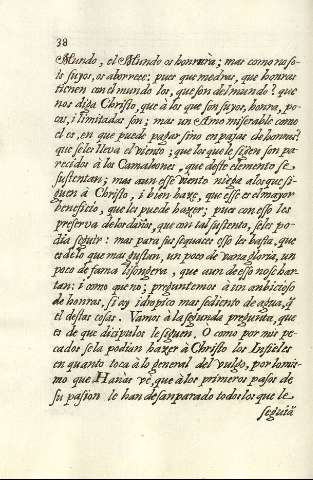 38
Mundo, el Mundo os honrarà; mas como no so-
is suyos, os aborrece: pues que medras, que honras
tienen con el mundo los, que son del mundo? que
nos diga Christo, que à los que son suyos, honra, po-
cas, i limitadas son; mas un Amo miserable como
el es, en que puede pagar sino en pajas de honras?
que se les lleva el viento; que los que le sigen son pa-
recidos à los Camaleones, que deste elemento se
sustentan; mas aun esse viento niega a los que si-
guen à Christo, i bien haze, que esse es el mayor
beneficio, que les puede hazer; pues con esso los
preserva de los daños, que con tal sustento, se les po-
dia seguir: mas para sus sequaces esso les basta, que
es de lo que mas gustan, un poco de vanagloria, un
poco de fama lisongera, que aun de esso no se har-
tan; i como que no; preguntemos à un anbicioso
de honras, si ay idropico mas sediento de agua, q̃
el destas cosas. Vamos à la segunda pregunta, que
es de que dicipulos le siguen. O como por mis pe-
cados se la podian hazer à Christo los Infieles
en quanto toca à lo general del vulgo, por lo mis-
mo que Hanàs vè, que à los primeros pasos de
su pasion le han desanparado todos los que le
seguiã